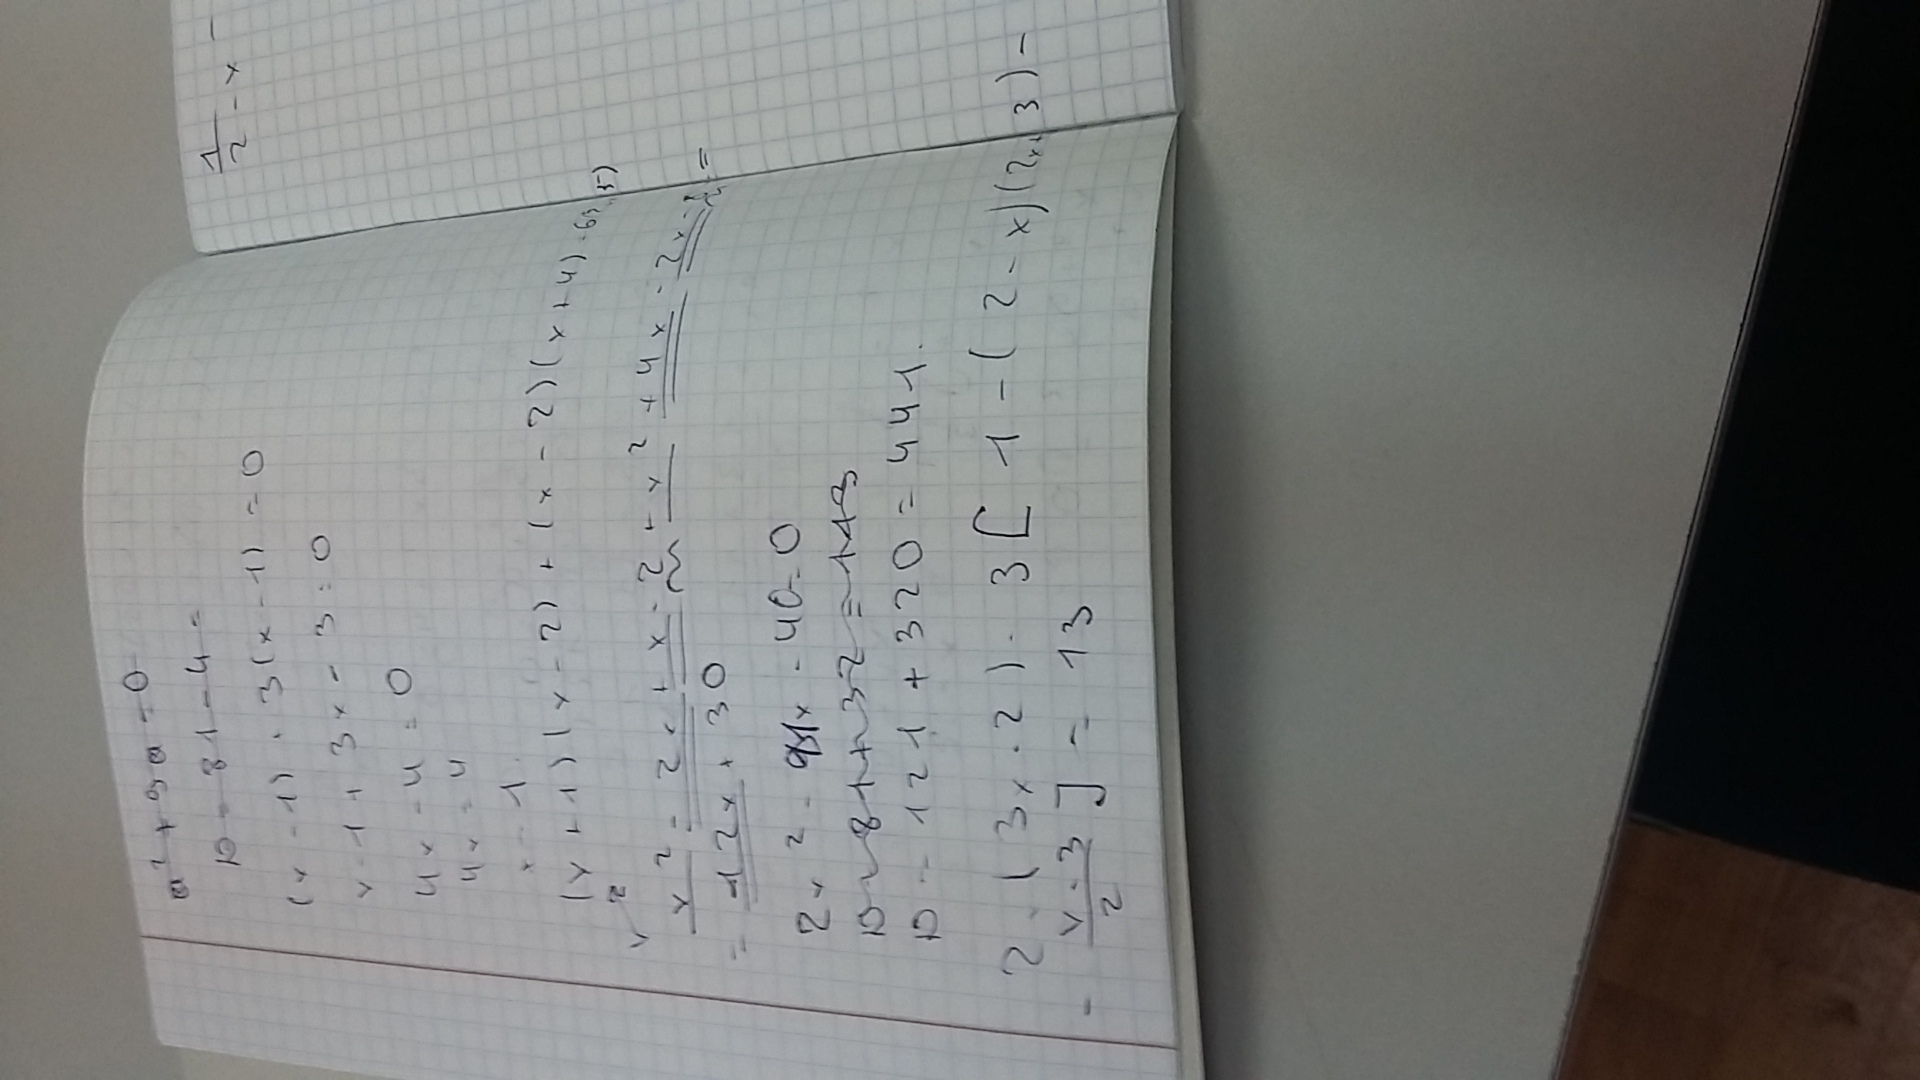 a² + 9a = 0
D = 81 - 4 =
(x - 1) · 3(x - 1) = 0
x - 1 + 3x - 3 = 0
4x - 4 = 0
4x = 4
x = 1.
(x + 1)(x - 2) + (x - 2)(x + 4)
x² - 2x + x - 2 + x² + 4x - 2x - 8 =
= 12x + 30
2x² - 11x - 40 = 0
D = 81 + 32 = 113
D = 121 + 320 = 441.
2 · (3x · 2) · 3[1 - (2 - x)(2x + 3) -
- x · 3 / 2] = 13
1/2 - x -